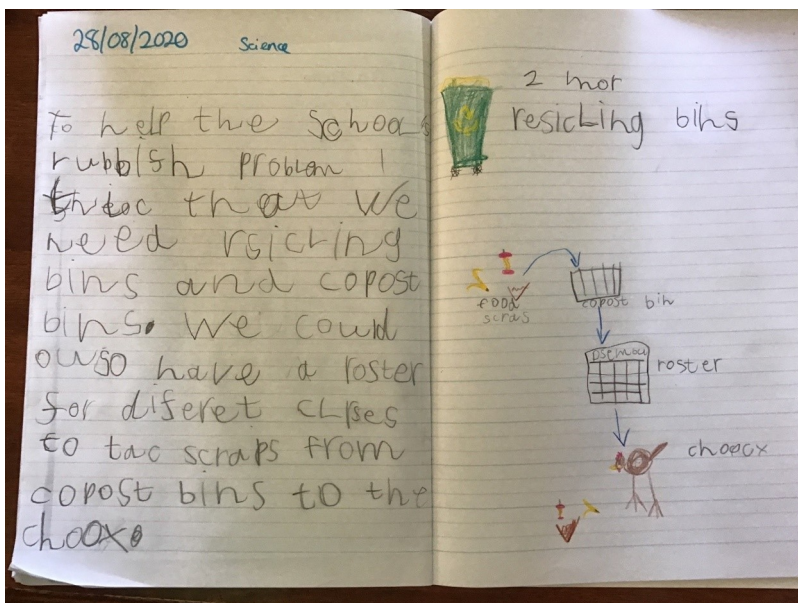 28/08/2020 Science
To help the School s
rubbish problem I
thioc that we
need rsicling
bins and copost
bins. We could
owso have a roster
for diferet clases
to tac scraps from
copost bins to the
choox.
2 mor
resickling bins
food
scras
copost bin
roster
choocx